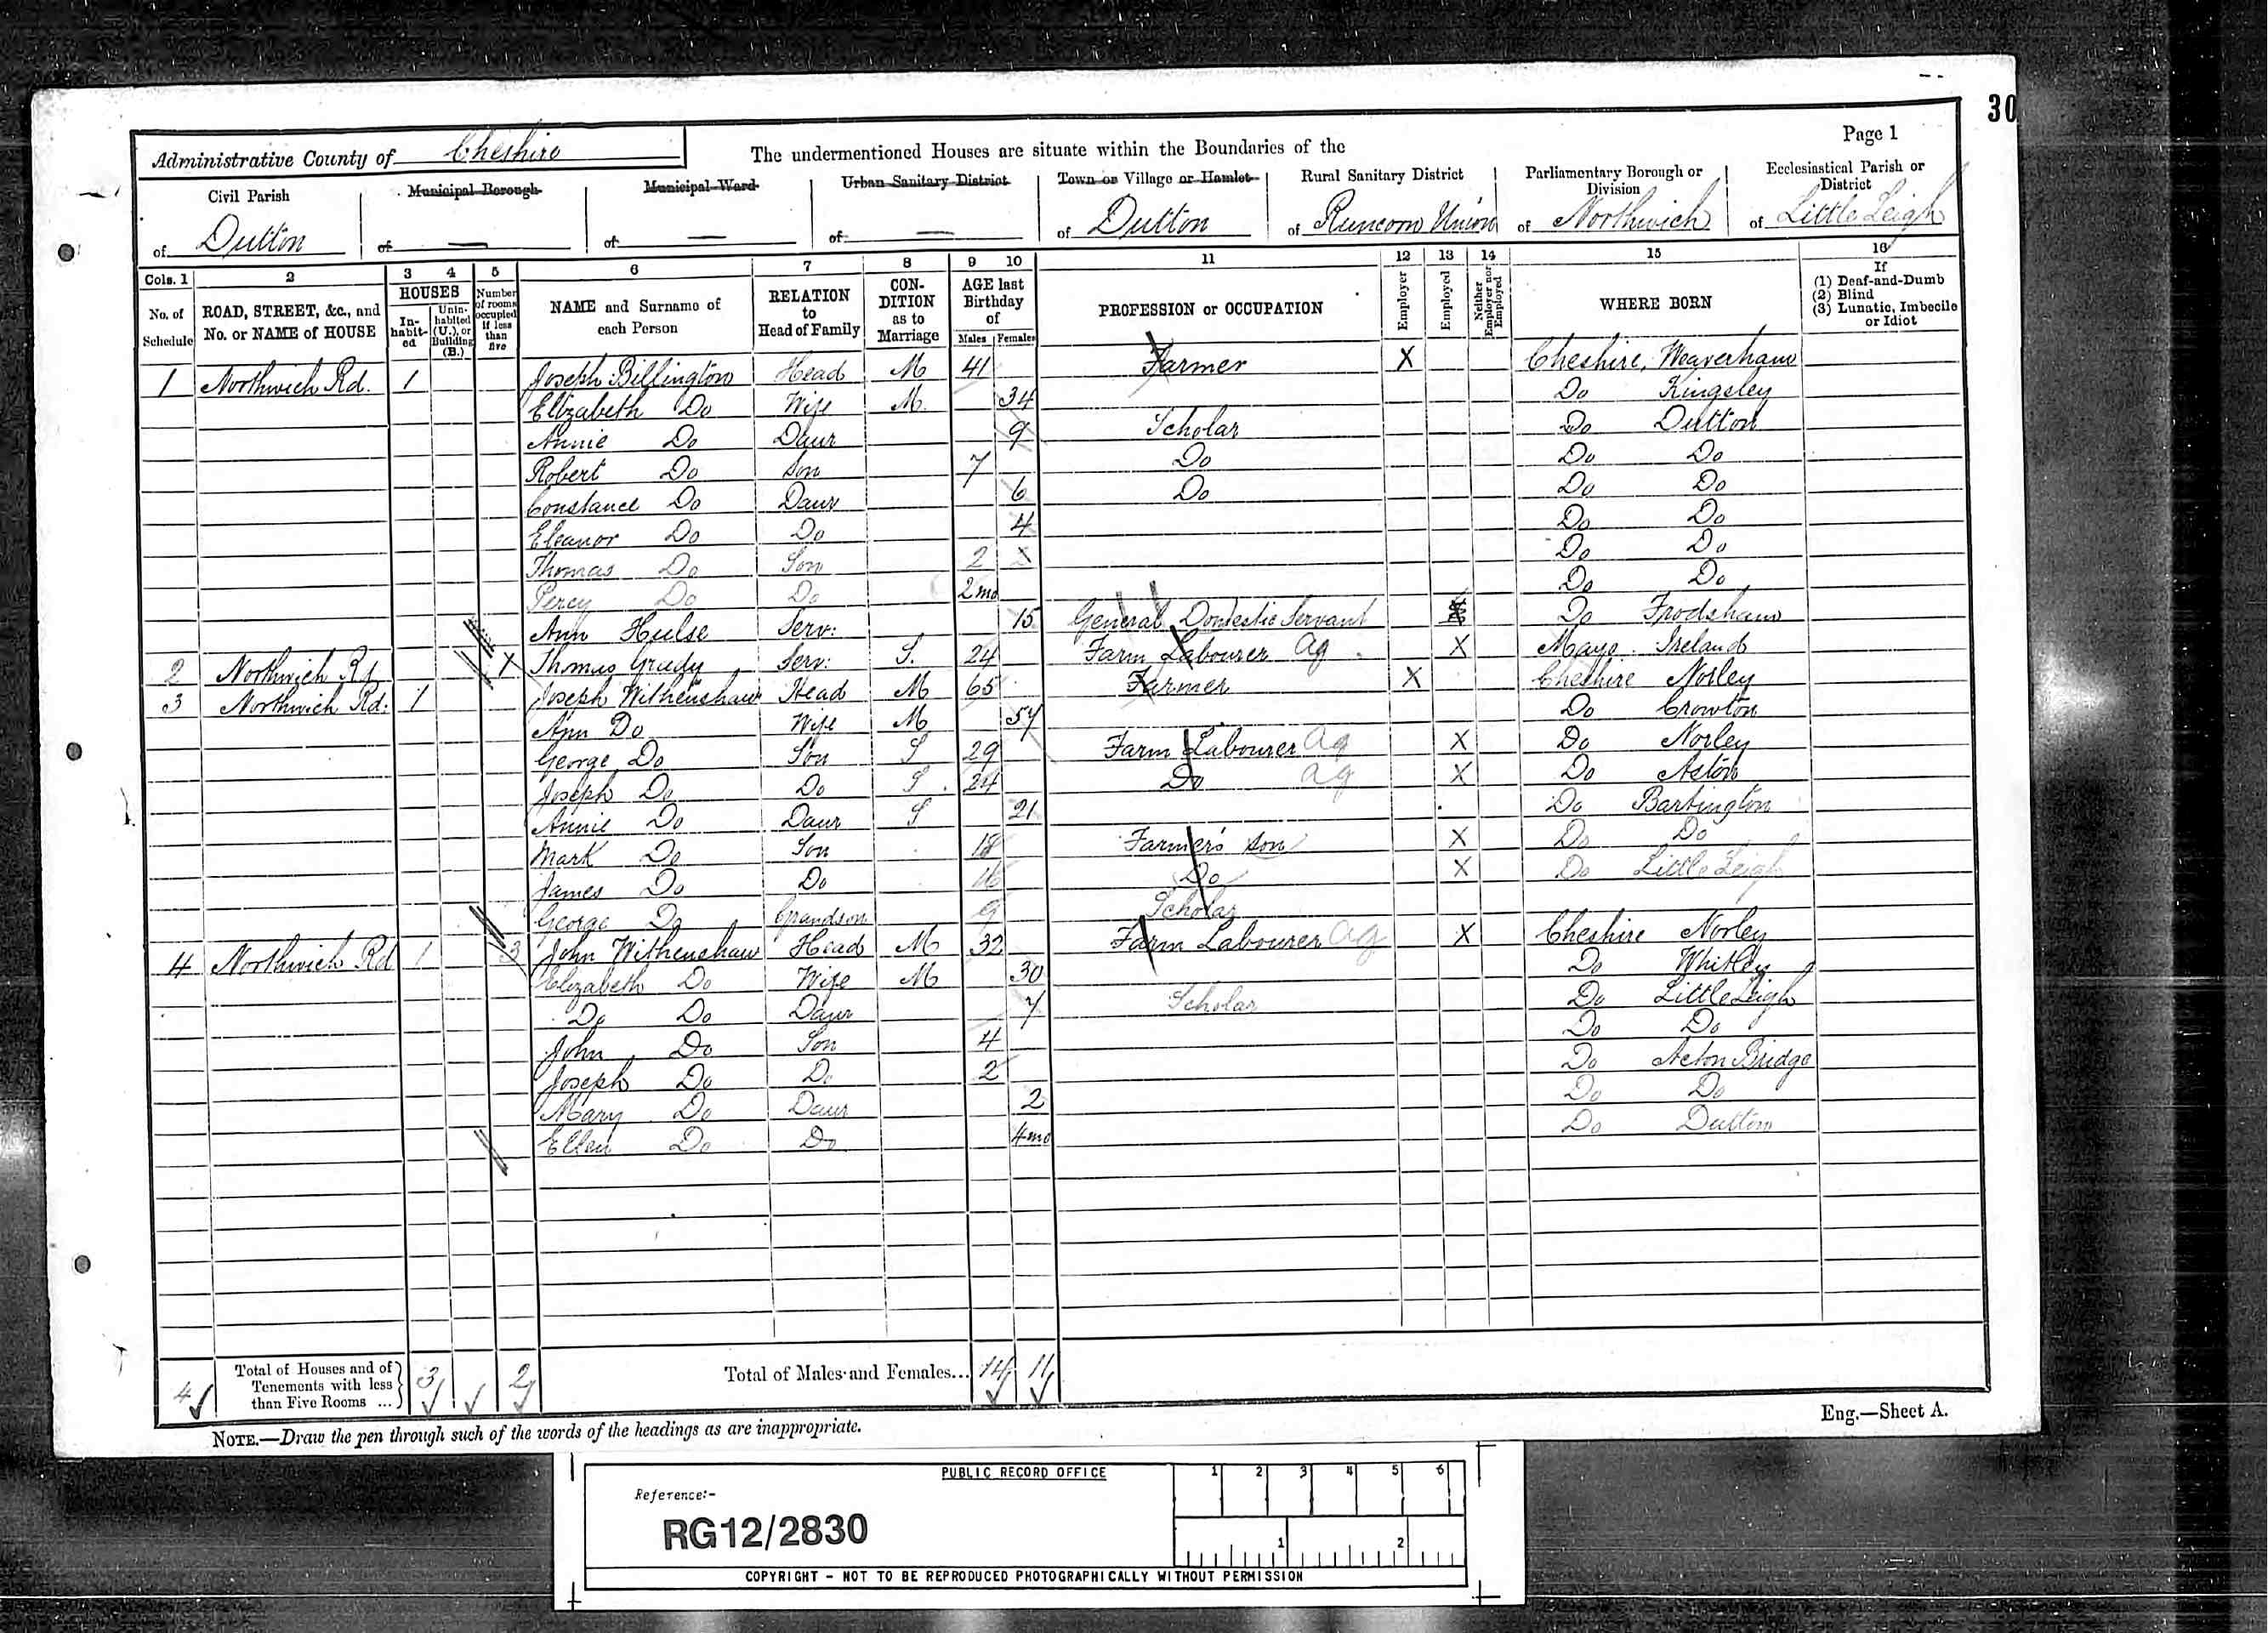 30
Page 1
Administrative County of Cheshire
The undermentioned Houses are situate within the Boundaries of the
Civil Parish of Dutton
Municipal Borough of —
Municipal Ward of —
Urban Sanitary District of —
Town or Village or Hamlet of Dutton
Rural Sanitary District of Runcorn Union
Parliamentary Borough or Division of Northwich
Ecclesiastical Parish or District of Little Leigh
Cols. 1 2 3 4 5 6 7 8 9 10 11 12 13 14 15 16
No. of Schedule
ROAD, STREET, &c., and No. or NAME of HOUSE
HOUSES
In-habit-ed
Unin-habited (U.), or Building (B.)
Number of rooms occupied if less than five
NAME and Surname of each Person
RELATION to Head of Family
CON-DITION as to Marriage
AGE last Birthday of
Males Females
PROFESSION or OCCUPATION
Employer
Employed
Neither Employer nor Employed
WHERE BORN
If (1) Deaf-and-Dumb (2) Blind (3) Lunatic, Imbecile or Idiot
1 Northwich Rd. 1 Joseph Billington Head M 41 Farmer X Cheshire, Weaverham
Elizabeth Do Wife M. 34 Do Kingsley
Annie Do Daur 9 Scholar Do Dutton
Robert Do Son 7 Do Do Do
Constance Do Daur 6 Do Do Do
Eleanor Do Do 4 Do Do
Thomas Do Son 2 Do Do
Percy Do Do 2mo Do Do
Ann Hulse Serv: 15 General Domestic Servant Do Frodsham
2 Northwich Rd X Thomas Grady Serv: S. 24 Farm Labourer Ag X Mayo. Ireland
3 Northwich Rd. 1 Joseph Withenshaw Head M 65 Farmer X Cheshire Norley
Ann Do Wife M 57 Do Crowton
George Do Son S 29 Farm Labourer Ag X Do Norley
Joseph Do Do S. 24 Do Ag X Do Aston
Annie Do Daur S 21 Do Bartington
Mark Do Son 18 Farmer's Son X Do Do
James Do Do 16 Do X Do Little Leigh
George Do Grandson 9 Scholar
4 Northwich Rd 1 3 John Withenshaw Head M 32 Farm Labourer Ag X Cheshire Norley
Elizabeth Do Wife M 30 Do Whitley
Do Do Daur 7 Scholar Do Little Leigh
John Do Son 4 Do Do
Joseph Do Do 2 Do Acton Bridge
Mary Do Daur 2 Do Do
Ellen Do Do 4mo Do Dutton
4 Total of Houses and of Tenements with less than Five Rooms ... 3 2 Total of Males and Females... 14 11
NOTE.—Draw the pen through such of the words of the headings as are inappropriate.
Eng.—Sheet A.
PUBLIC RECORD OFFICE
1 2 3 4 5 6
Reference:-
RG12/2830
1 2
COPYRIGHT - NOT TO BE REPRODUCED PHOTOGRAPHICALLY WITHOUT PERMISSION